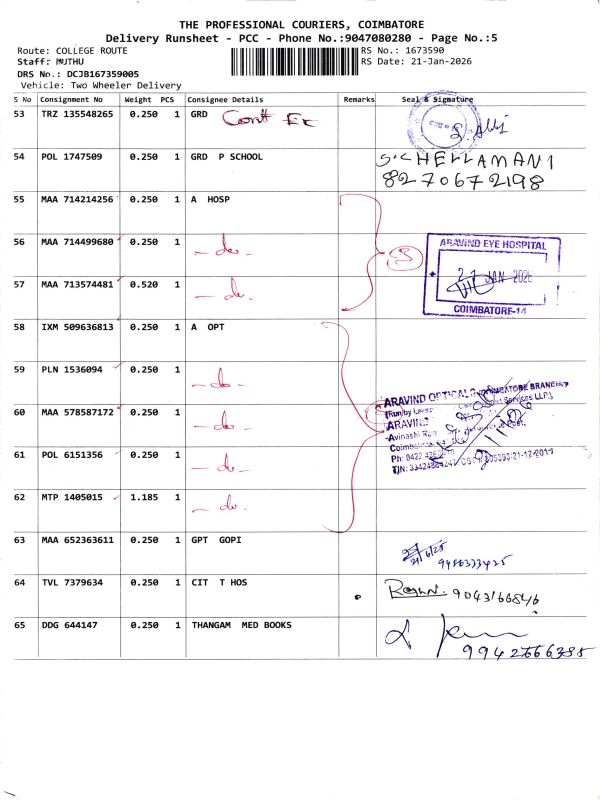 THE PROFESSIONAL COURIERS, COIMBATORE
Delivery Runsheet - PCC - Phone No.:9047080280 - Page No.:5
Route: COLLEGE ROUTE
RS No.: 1673590
Staff: MUTHU
RS Date: 21-Jan-2026
DRS No.: DCJB167359005
Vehicle: Two Wheeler Delivery
S No Consignment No Weight PCS Consignee Details Remarks Seal & Signature
53 TRZ 135548265 0.250 1 GRD
54 POL 1747509 0.250 1 GRD P SCHOOL S.CHELLAMANI
8270672198
55 MAA 714214256 0.250 1 A HOSP
56 MAA 714499680 0.250 1 - do -
5
ARAVIND EYE HOSPITAL
21 JAN 2026
COIMBATORE-14
57 MAA 713574481 0.520 1 - do -
58 IXM 509636813 0.250 1 A OPT
59 PLN 1536094 0.250 1 - do -
60 MAA 578587172 0.250 1 - do -
ARAVIND OPTICALS COIMBATORE BRANCH
ARAVIND
Avinashi
61 POL 6151356 0.250 1 - do -
62 MTP 1405015 1.185 1 - do -
63 MAA 652363611 0.250 1 GPT GOPI
9486333425
64 TVL 7379634 0.250 1 CIT T HOS
9043166846
65 DDG 644147 0.250 1 THANGAM MED BOOKS
9942666385